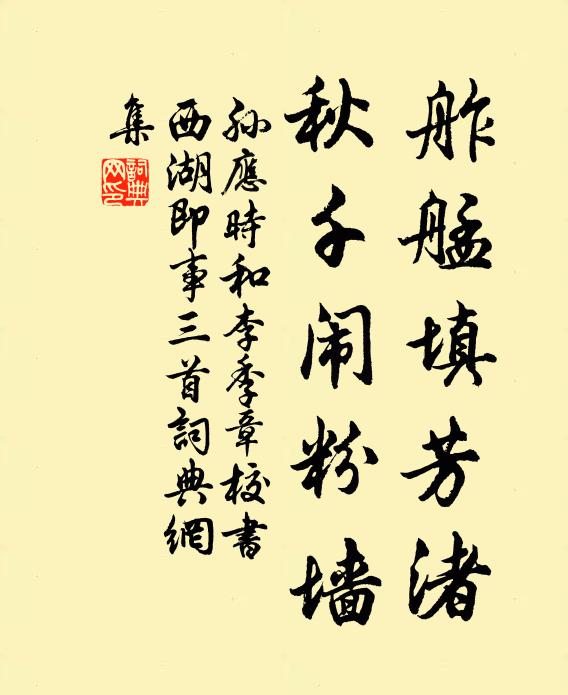 舴艋填芳渚
秋千闹粉墙
孙應時和李季章校書
西湖即事三首詞典網
集
詞典
网印